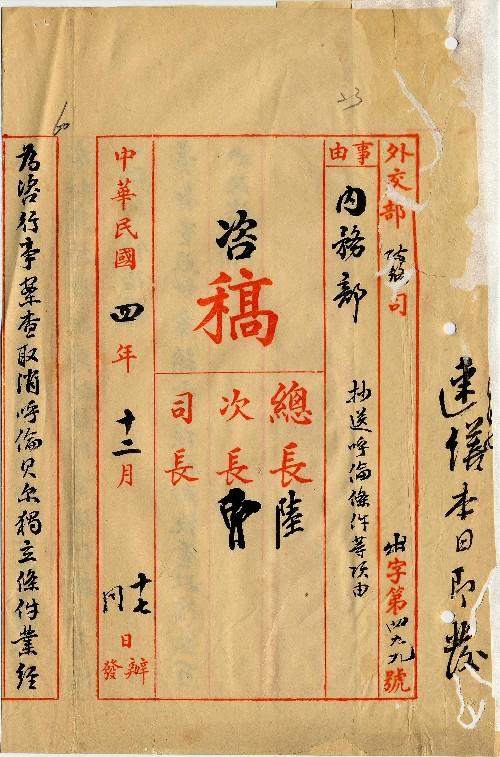 速繕本日即發
外交部 政務司 字第四九九號
事由
內務部
抄送呼倫條件等項由
咨
稿
總長 陸
次長 曹
司長
中華民國四年十二月十七日辦
同 發
為咨行事案查取消呼倫貝尔獨立條件業經